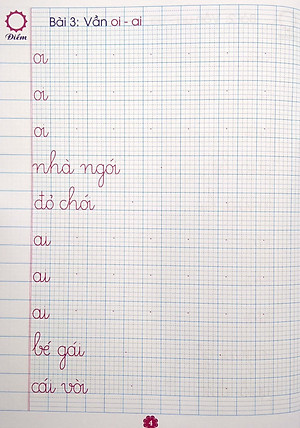 Điểm
Bài 3: Vần oi - ai
oi
oi
oi
nhà ngói
đỏ chói
ai
ai
ai
bé gái
cái vòi
4